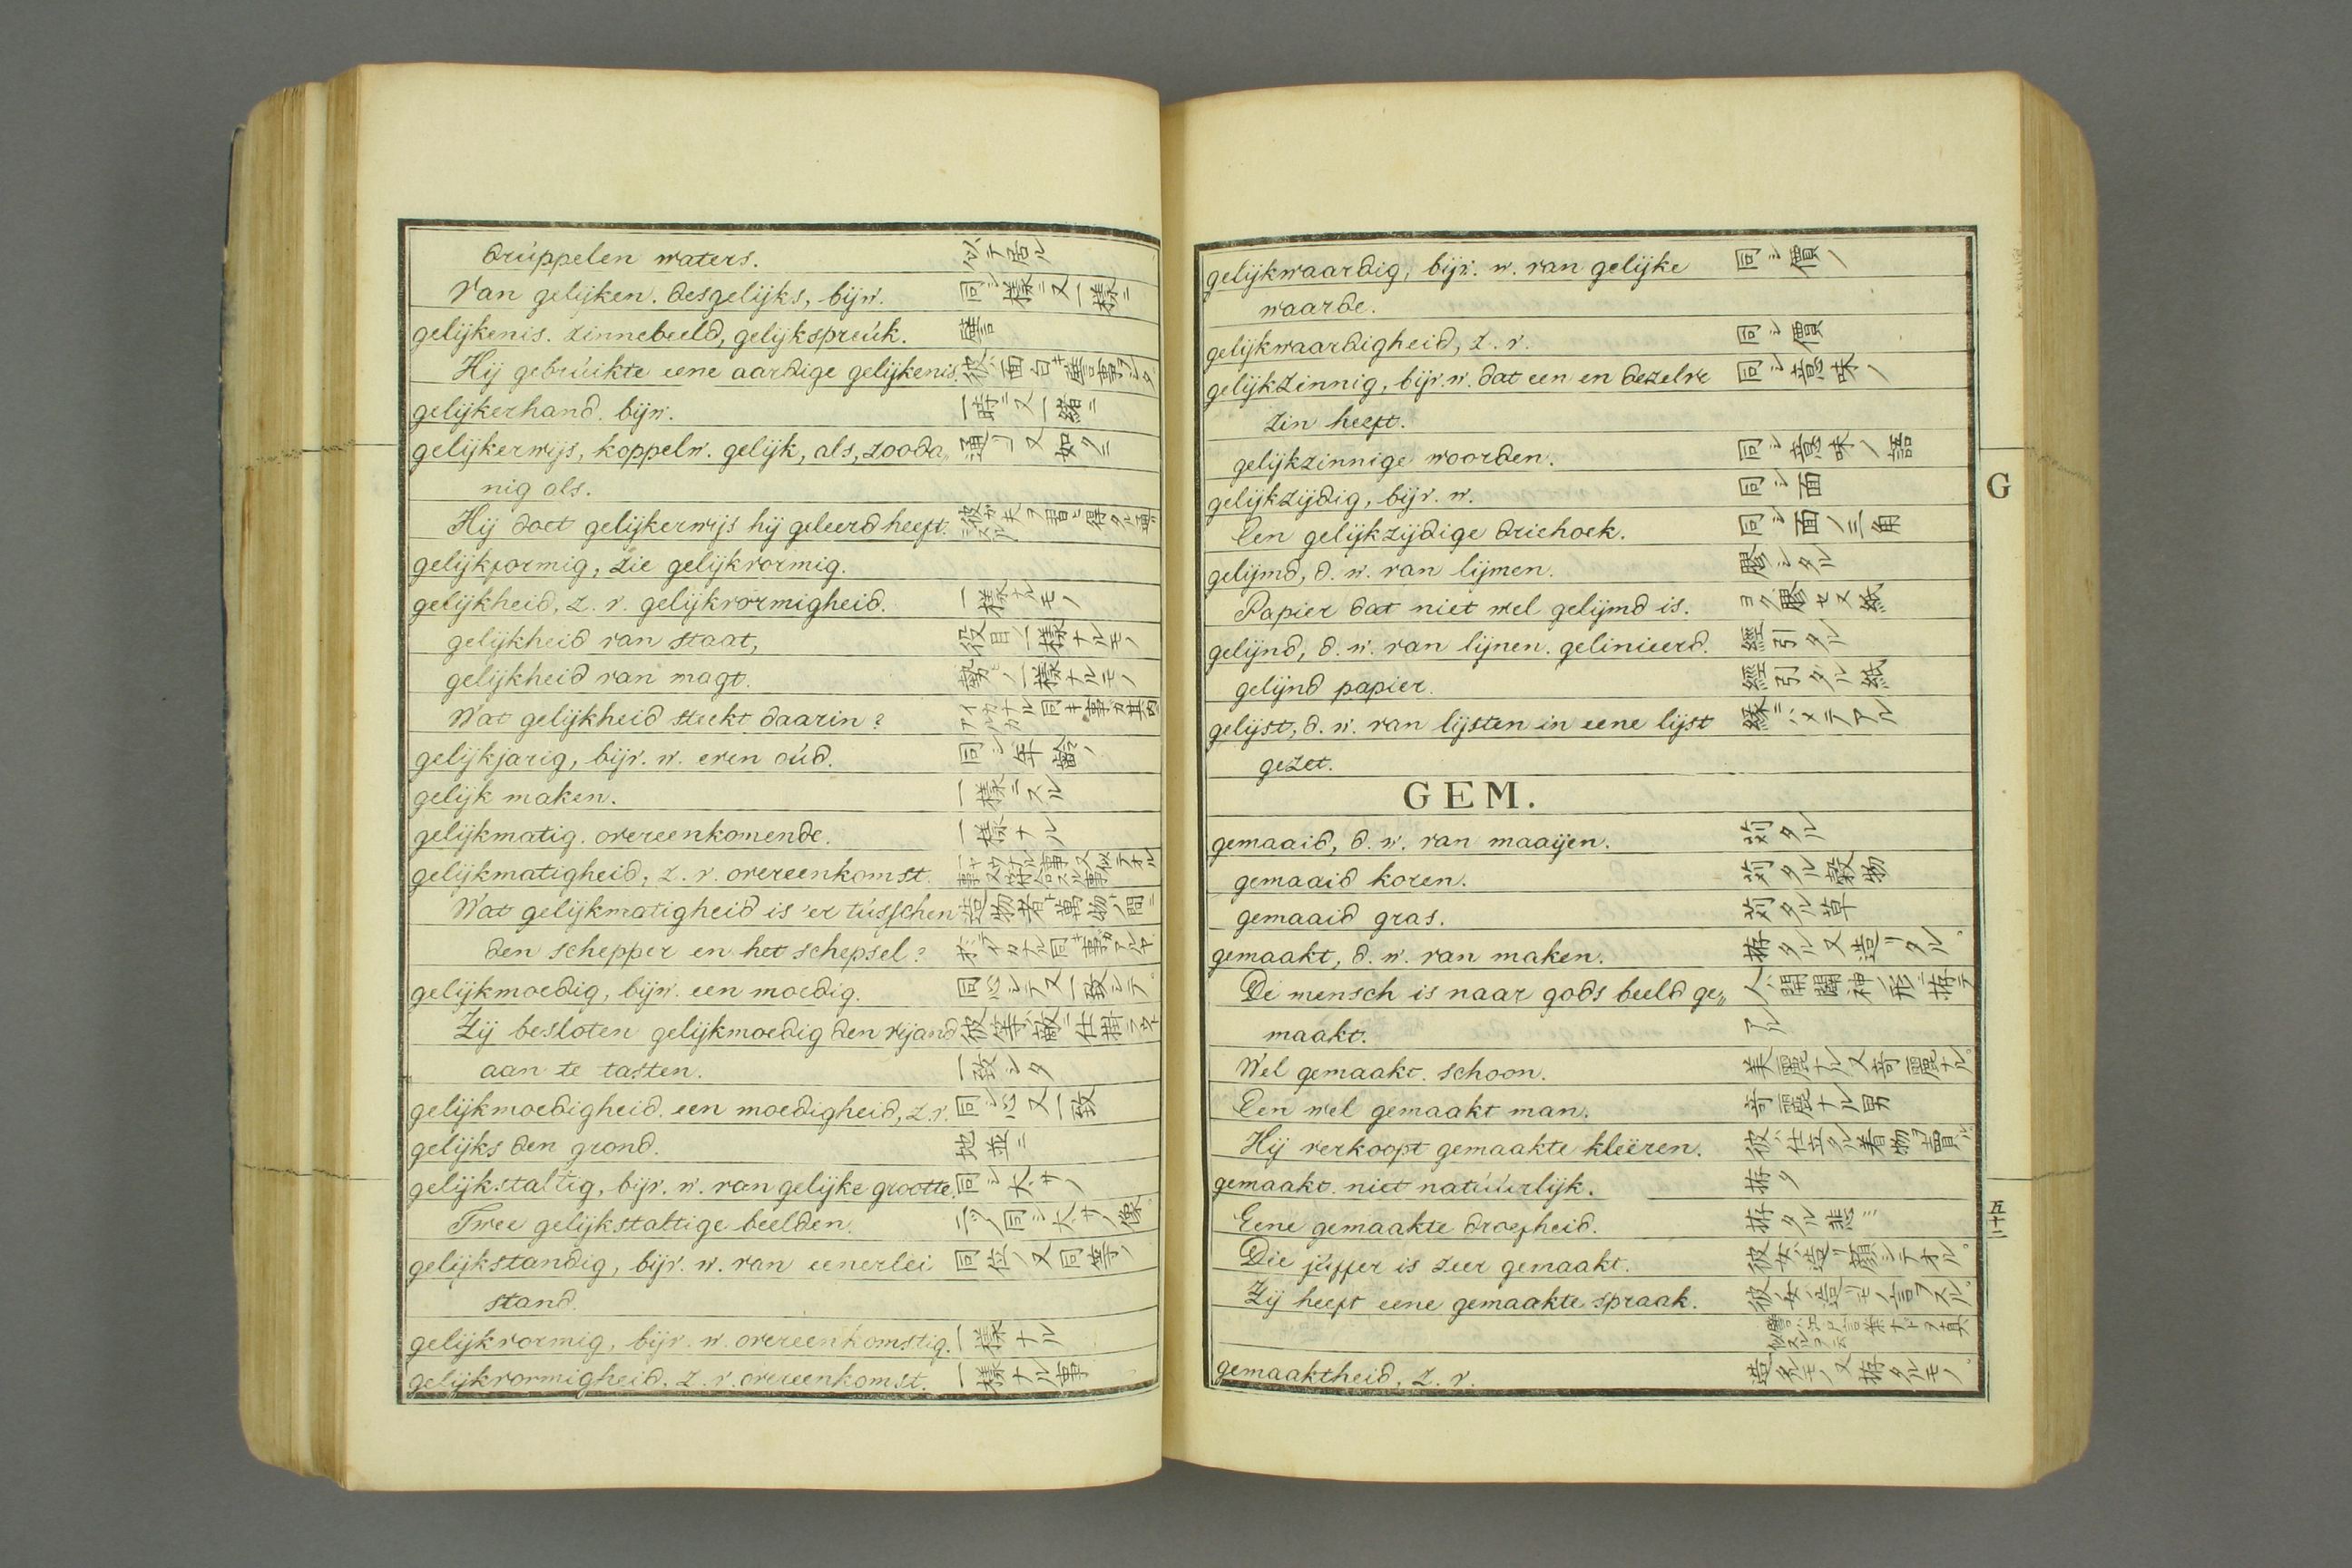 drúppelen waters. 似テ居ル
Van gelijken. desgelijks, bijw. 同シ様ニ又一様ニ
gelijkenis. zinnebeeld, gelijkspreúk.
Hij gebrúikte eene aardige gelijkenis.
gelijkerhand. bijw. 一時ニ又一緒ニ
gelijkerwijs, koppelw. gelijk, als, zooda„ 通リ又如クニ
nig als.
Hij doet gelijkerwijs hij geleerd heeft.
gelijkformig, zie gelijkvormig.
gelijkheid, z. v. gelijkvormigheid. 一様ナルモノ
gelijkheid van staat, 役目ノ一様ナルモノ
gelijkheid van magt. 勢ノ一様ナルモノ
Wat gelijkheid steekt daarin?
gelijkjarig, bijv. w. even oúd. 同シ年齢ノ
gelijk maken. 一様ニスル
gelijkmatig. overeenkomende. 一様ナル
gelijkmatigheid, z. v. overeenkomst.
Wat gelijkmatigheid is 'er tússchen
den schepper en het schepsel?
gelijkmoedig, bijw. een moedig. 同心シテ又一致シテ。
Zij besloten gelijkmoedig den vijand
aan te tasten. 一致シタ
gelijkmoedigheid. een moedigheid, z. v. 同シ心又一致
gelijks den grond. 地並ニ
gelijkstaltig, bijv. w. van gelijke grootte. 同シ大サノ
Twee gelijkstaltige beelden. 二ツノ同シ大サノ像。
gelijkstandig, bijv. w. van eenerlei 同位ノ又同等ノ
stand.
gelijkvormig, bijv. w. overeenkomstig. 一様ナル
gelijkvormigheid. z. v. overeenkomst. 一様ナル事
gelijkwaardig, bijv. w. van gelijke 同シ價ノ
waarde.
gelijkwaardigheid, z. v. 同シ價
gelijkzinnig, bijv. w. dat een en dezelve 同シ意味ノ
zin heeft.
gelijkzinnige woorden. 同シ意味ノ語
gelijkzijdig, bijv. w. 同シ面
Een gelijkzijdige driehoek. 同シ面ノ三角
gelijmd, d. w. van lijmen. 膠シタル
Papier dat niet wel gelijmd is. ヨク膠セヌ紙
gelijnd, d. w. van lijnen. gelinieerd. 經引タル
gelijnd papier. 經引タル紙
gelijst, d. w. van lijsten in eene lijst 縁ニハメテアル
gezet.
GEM.
gemaaid, d. w. van maaijen. 苅タル
gemaaid koren. 苅タル穀物
gemaaid gras. 苅タル草
gemaakt, d. w. van maken. 拵タル又造リタル。
De mensch is naar gods beeld ge„
maakt.
Wel gemaakt. schoon. 美麗ナル又奇麗ナル。
Een wel gemaakt man. 奇麗ナル男
Hij verkoopt gemaakte kleëren.
gemaakt. niet natúúrlijk. 拵タ
Eene gemaakte droefheid. 拵タル悲ミ
Die júffer is zeer gemaakt.
Zij heeft eene gemaakte spraak.
gemaaktheid, z. v.
G
五十二